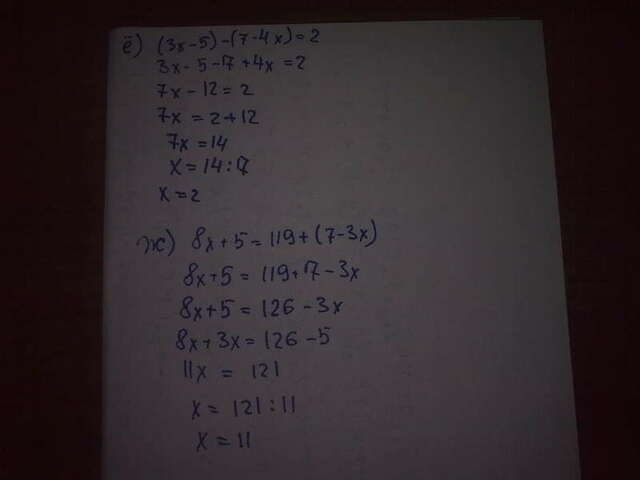 ё) (3x-5)-(7-4x)=2
3x-5-7+4x=2
7x-12=2
7x=2+12
7x=14
x=14:7
x=2
ж) 8x+5=119+(7-3x)
8x+5=119+7-3x
8x+5=126-3x
8x+3x=126-5
11x=121
x=121:11
x=11